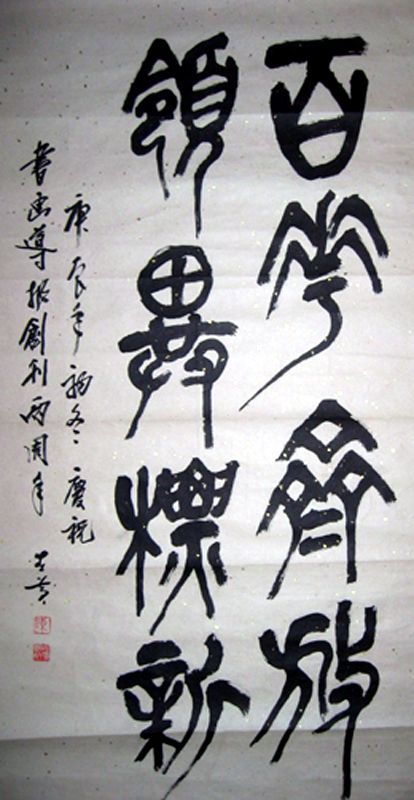 百花齊放
領異標新
庚辰年初冬慶祝
書画導報創刊两周年